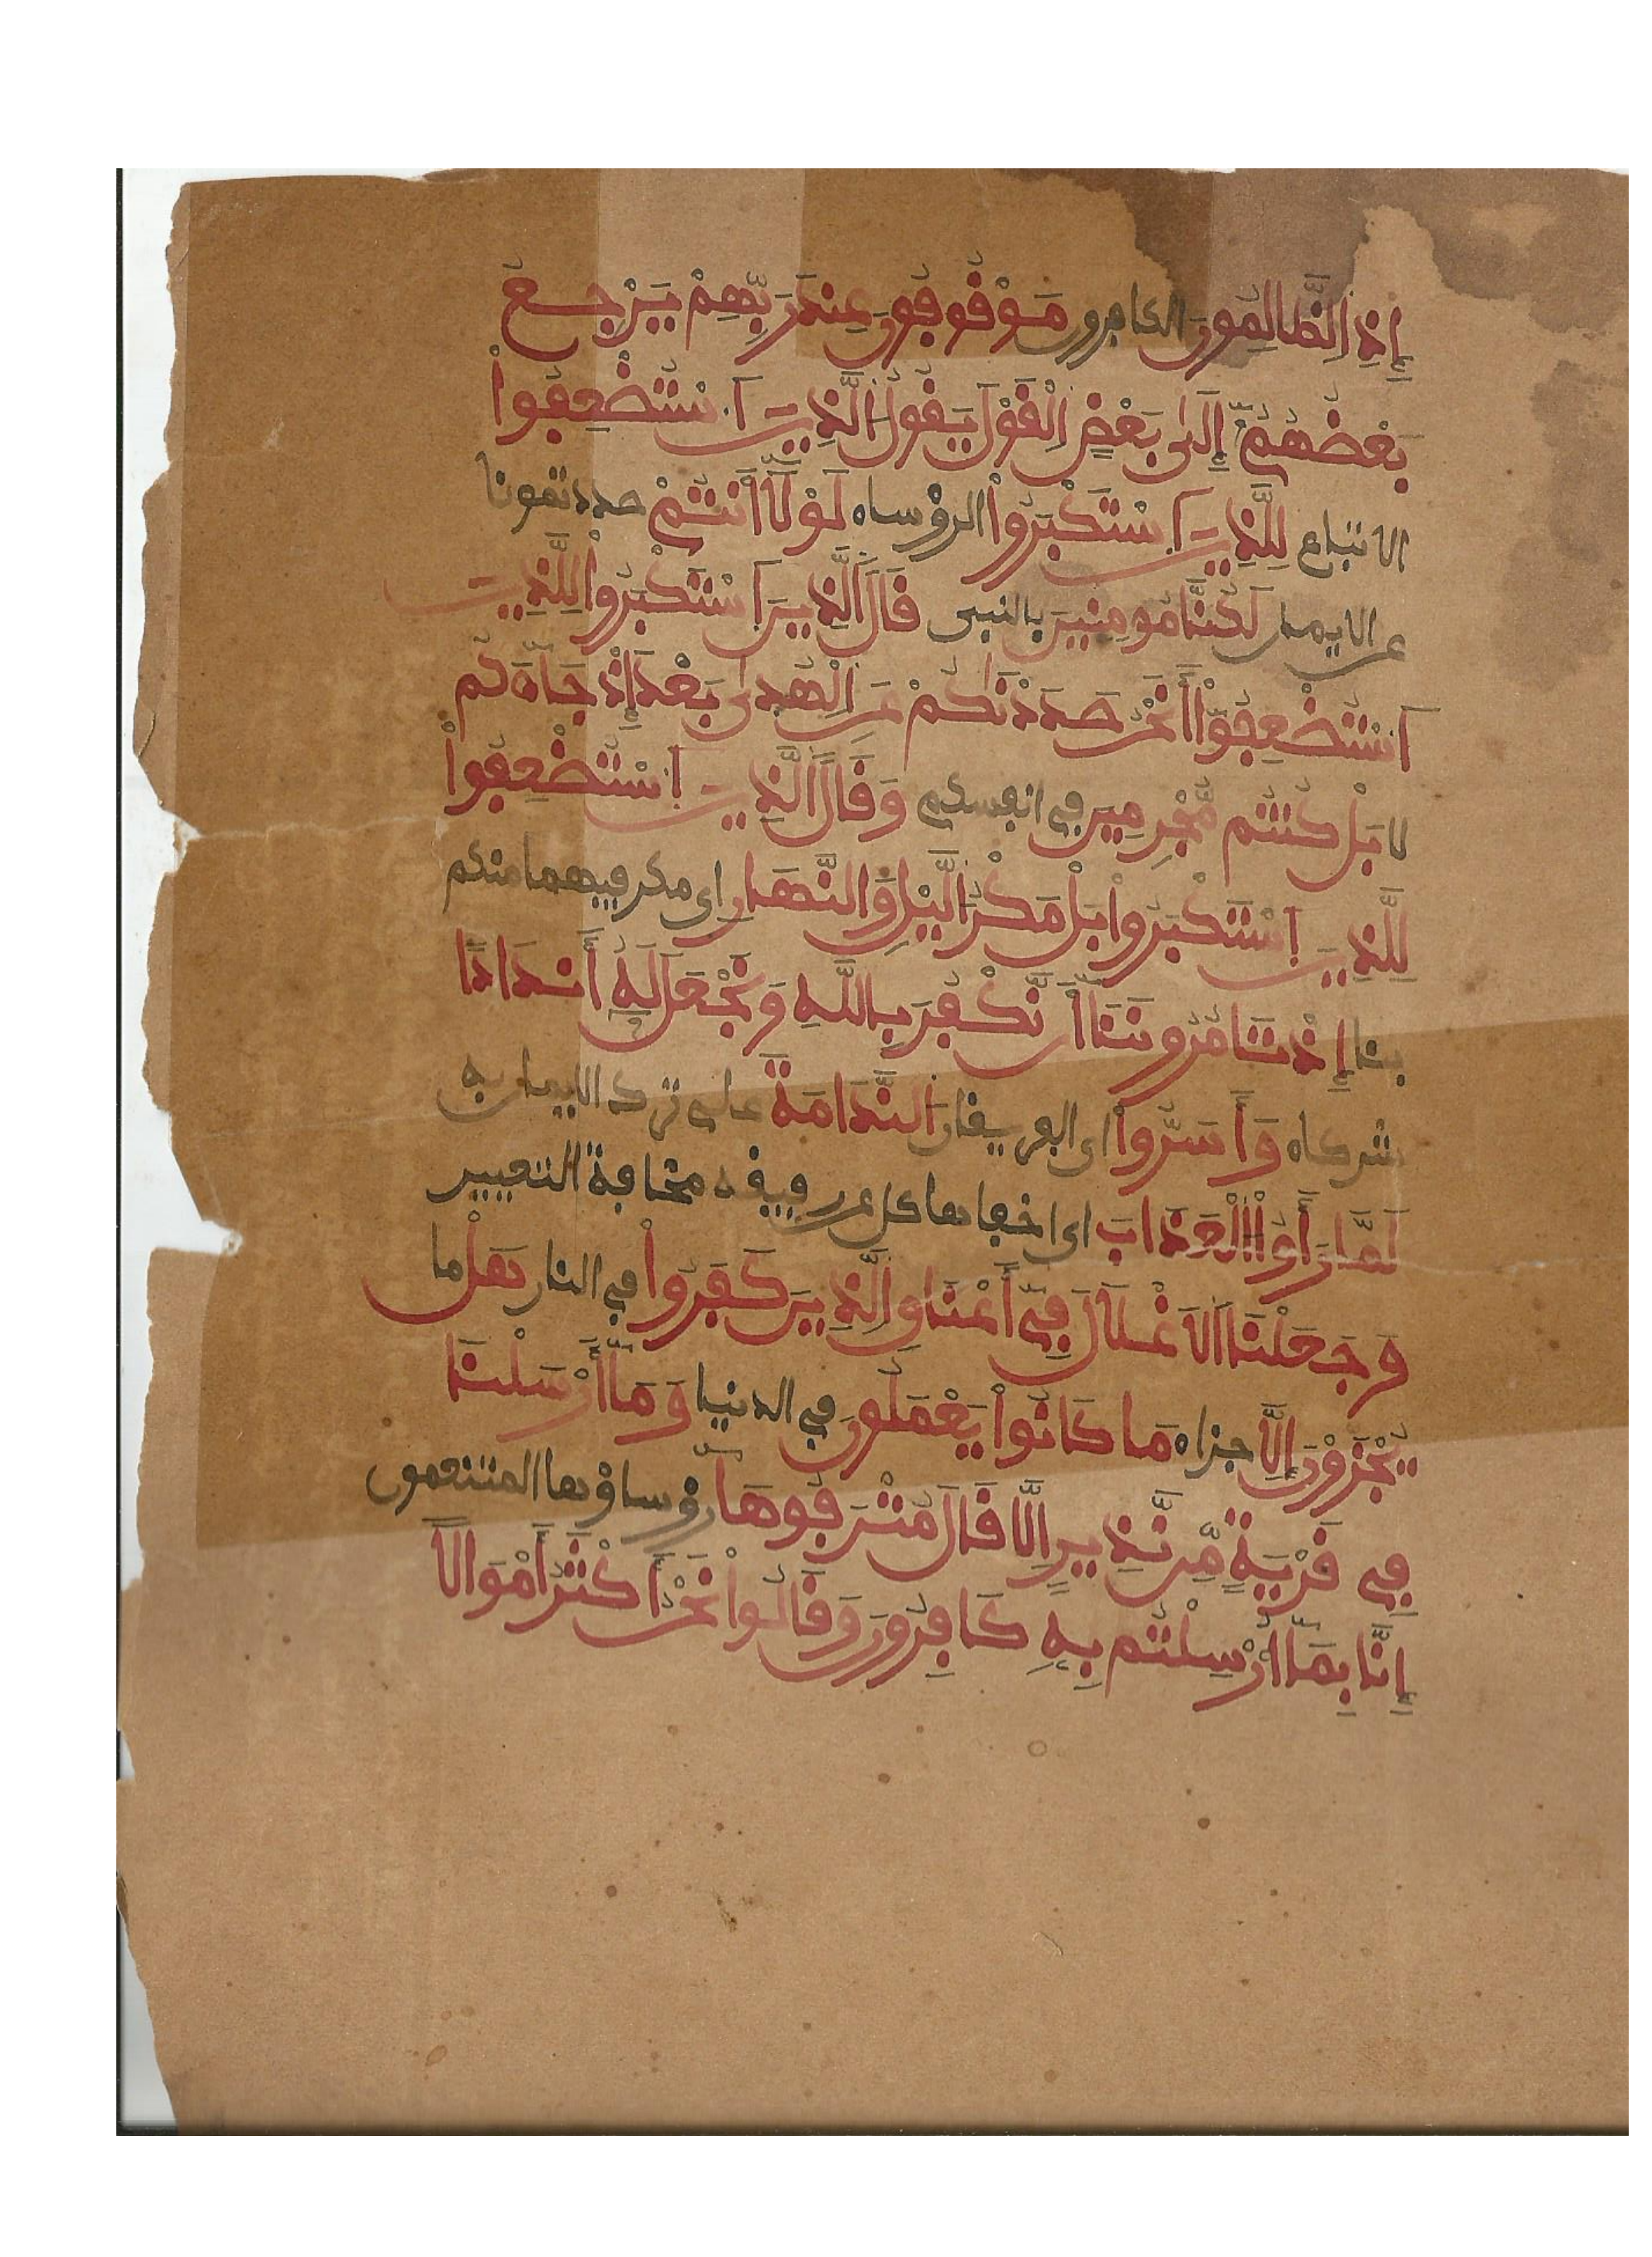 إِذِ الظَّالِمُونَ الكافرون مَوْقُوفُونَ عِندَ رَبِّهِمْ يَرْجِعُ
بَعْضُهُمُ إِلَىٰ بَعْضٍ اِلْقَوْلَ يَقُولُ الَّذِينَ اَسْتُضْعِفُواْ
الاتباع لِلَّذِينَ اَسْتَكْبَرُواْ الرؤساء لَوْلَا أَنتُمْ صددتمونا
عن الايمان لَكُنَّا مُومِنِينَ بالنبي قَالَ الَّذِينَ اَسْتَكْبَرُواْ لِلَّذِينَ
اَسْتُضْعِفُواْ أَنَحْنُ صَدَدْنَٰكُمْ عَنِ الْهُدَىٰ بَعْدَ إِذْ جَآءَكُم
لا بَلْ كُنتُم مُّجْرِمِينَ في انفسكم وَقَالَ الَّذِينَ اَسْتُضْعِفُواْ
لِلَّذِينَ اَسْتَكْبَرُواْ بَلْ مَكْرُ الَّيْلِ وَالنَّهَارِ اي مكر فيهما منكم
بنا إِذْ تَامُرُونَنَا أَن نَّكْفُرَ بِاللَّهِ وَنَجْعَلَ لَهُ أَندَادًا
شركاء وَأَسَرُّواْ اي الفريقان النَّدَامَةَ على ترك الايمان به
لَمَّا رَأَوُاْ الْعَذَابَ اي اخفاها كل عن رفيقه مخافة التعيير
وَجَعَلْنَا اَلَاغْلَالَ فِي أَعْنَاقِ الَّذِينَ كَفَرُواْ في النار هَلْ ما
يُجْزَوْنَ إِلَّا جزاء مَا كَانُواْ يَعْمَلُونَ في الدنيا وَمَا أَرْسَلْنَا
فِي قَرْيَةٍ مِّن نَّذِيرٍ اِلَّا قَالَ مُتْرَفُوهَا رؤساؤها المتنعمون
إِنَّا بِمَا أُرْسِلْتُم بِهِ كَافِرُونَ وَقَالُواْ نَحْنُ أَكْثَرُ أَمْوَالًا